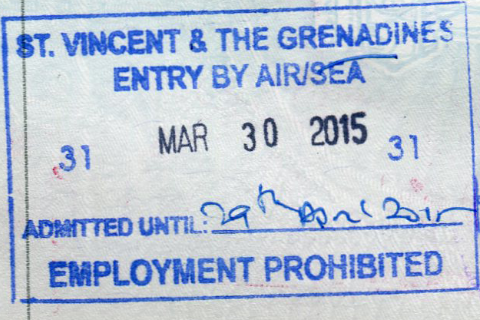 ST. VINCENT & THE GRENADINES
ENTRY BY AIR/SEA
MAR 30 2015
31 31
ADMITTED UNTIL: 29th April 2015
EMPLOYMENT PROHIBITED